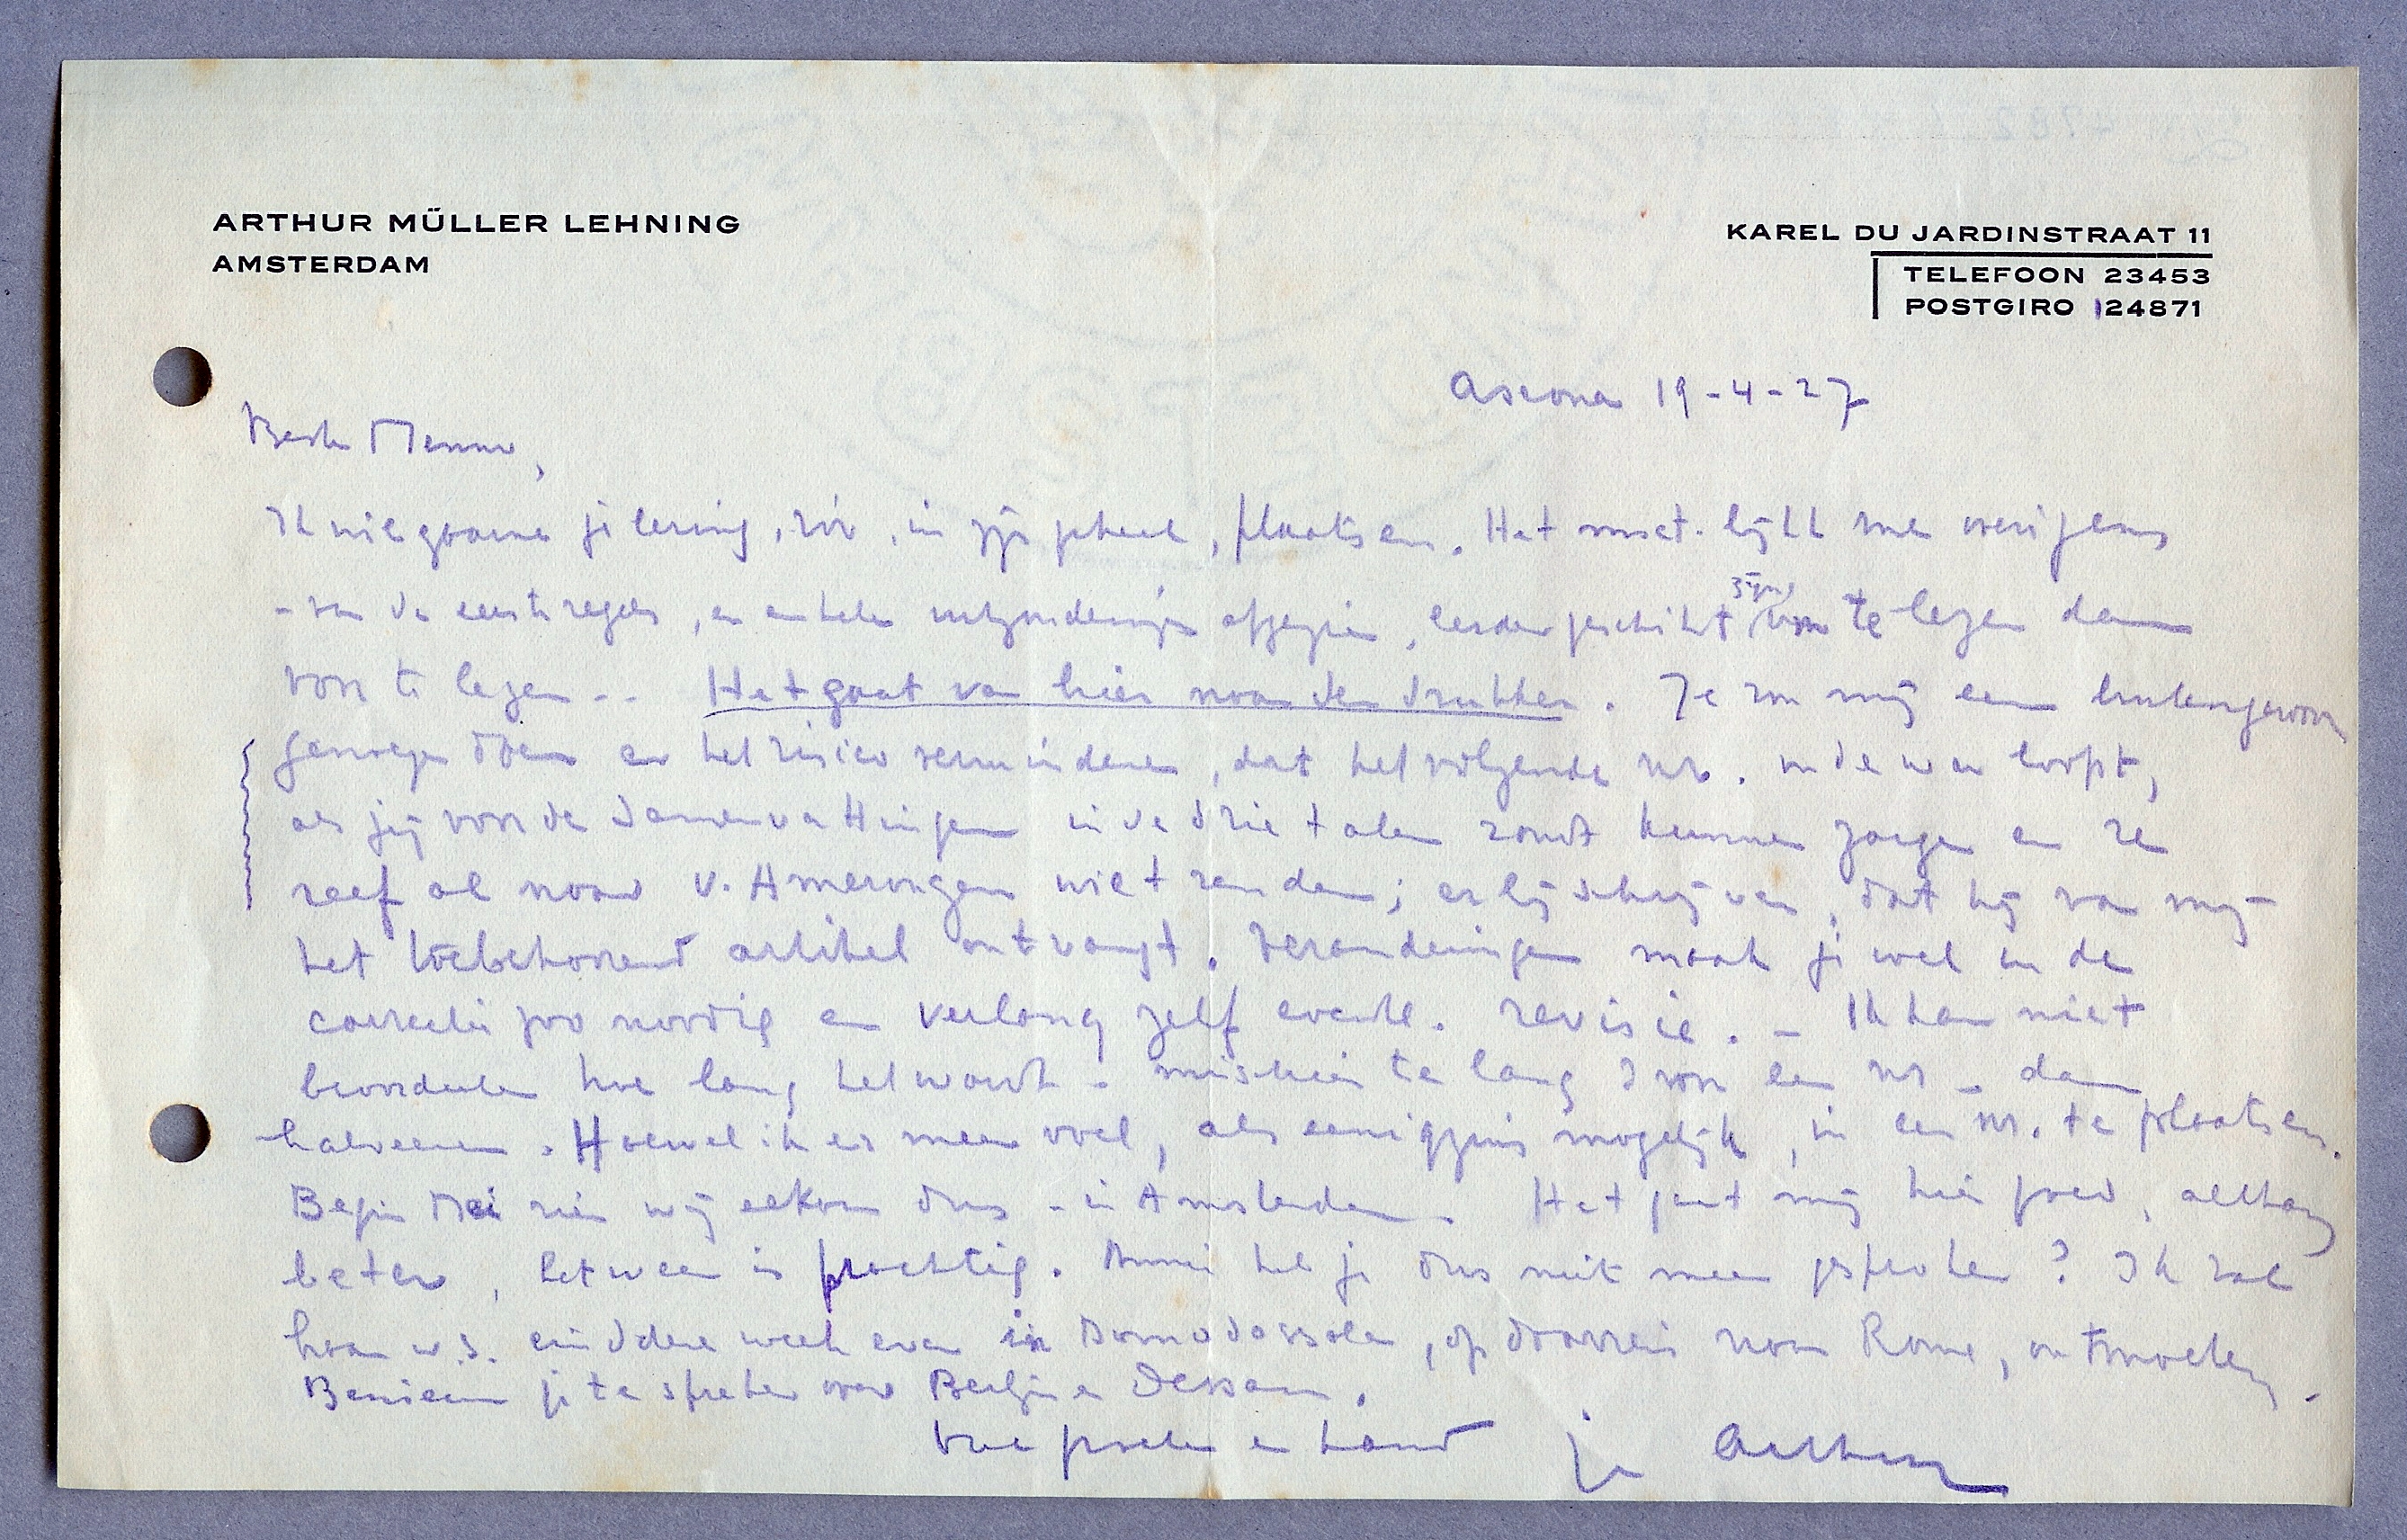 ARTHUR MÜLLER LEHNING
AMSTERDAM
KAREL DU JARDINSTRAAT 11
TELEFOON 23453
POSTGIRO 124871
Ascona 19-4-27
Beste Menno,
Ik wil gaarne je lezing, in zijn geheel, plaatsen. Het moet. lijkt me overigens
- van de eerste regels, en enkele uitzonderingen afgezien, eerder geschikt om te lezen dan
voor te lezen -. Het gaat van hier naar den drukker. Je zou mij een buitengewoon
genoegen doen en het risico verminderen, dat het volgende nr. in de war loopt,
als jij voor de samenvattingen in de drie talen zoudt kunnen zorgen en ze
reeds al naar v. Amerongen wilt zenden; erbij schrijven, dat hij van mij
het toebehoorend artikel ontvangt. Veranderingen maak je wel in de
correctie zoo noodig en verlang zelf eventl. revisie. - Ik kan niet
beoordeelen hoe lang het wordt - misschien te lang voor een nr - dan
halveeren. Hoewel ik er meer voel, als eenigszins mogelijk, in een nr. te plaatsen.
Begin Mei zien wij elkaar dus - in Amsterdam. Het gaat mij hier goed, althans
beter, het weer is prachtig. Annie heb je dus niet meer gesproken? Ik zal
haar w.s. eind deze week even in Domodossola, op doorreis naar Rome, ontmoeten.
Benieuwd je te spreken over Berlijn en Dessau.
groeten en hand je Arthur